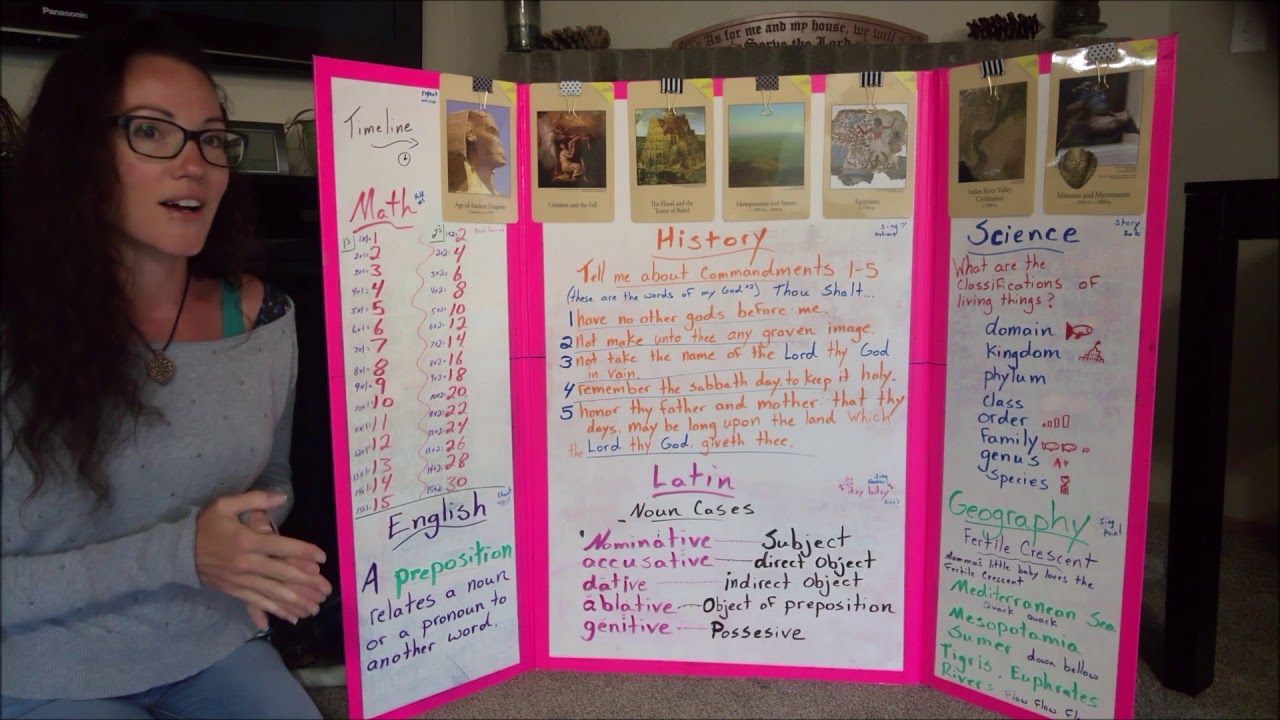 Panasonic
As for me and my house, we will
Serve the Lord
Timeline
Age of Ancient Empires
Creation and the Fall
The Flood and the
Tower of Babel
Mesopotamia and Sumer
Egyptians
Indus River Valley
Civilization
Minoans and Mycenaeans
Math
1's
1x1= 1
2x1= 2
3x1= 3
4x1= 4
5x1= 5
6x1= 6
7x1= 7
8x1= 8
9x1= 9
10x1= 10
11x1= 11
12x1= 12
13x1= 13
14x1= 14
15x1= 15
2's
1x2= 2
2x2= 4
3x2= 6
4x2= 8
5x2= 10
6x2= 12
7x2= 14
8x2= 16
9x2= 18
10x2= 20
11x2= 22
12x2= 24
13x2= 26
14x2= 28
15x2= 30
English
A preposition
relates a noun
or a pronoun to
another word.
History
Tell me about Commandments 1-5
(these are the words of my God) Thou Shalt...
1 have no other gods before me.
2 not make unto thee any graven image.
3 not take the name of the Lord thy God
in vain.
4 remember the sabbath day, to keep it holy.
5 honor thy father and mother: that thy
days may be long upon the land which
the Lord thy God giveth thee.
Latin
itsy bitsy
Noun Cases
Nominative Subject
accusative direct Object
dative indirect Object
ablative Object of preposition
genitive Possesive
Science
story
What are the
Classifications of
living things?
domain
Kingdom
phylum
class
order
Family
genus A+
species
Geography
sing
point
Fertile Crescent
Momma's little baby loves the
Fertile Crescent
Mediterranean Sea
Quack Quack
Mesopotamia
Sumer down bellow
Tigris, Euphrates
Rivers Flow Flow